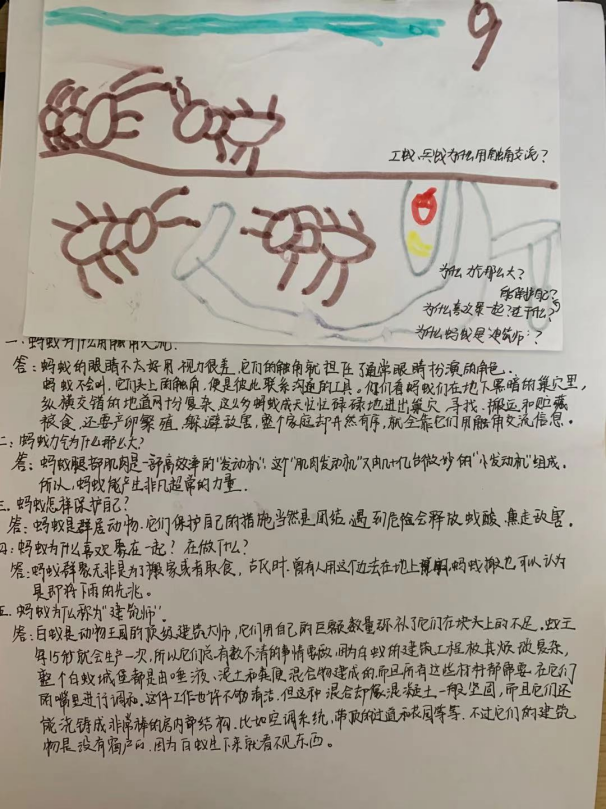 9
工蚁、兵蚁为什么用触角交流?
为什么力气那么大?
能保护自己?
为什么喜欢聚一起?在干什么?
为什么蚂蚁是"建筑师"?
一、蚂蚁为什么用触角交流.
答:蚂蚁的眼睛不太好用,视力很差,它们的触角就担任了通常眼睛扮演的角色.
蚂蚁不会叫,它们头上的触角,便是彼此联系沟通的工具。你们看蚂蚁们在地下黑暗的巢穴里,
纵横交错的地道网十份复杂,这么多蚂蚁成天忙忙碌碌地进出巢穴,寻找、搬运和贮藏
粮食,还要产卵繁殖,躲避敌害,整个家庭却井然有序,就全靠它们用触角交流信息。
二:蚂蚁力气为什么那么大?
答:蚂蚁腿部肌肉是一部高效率的"发动机",这个"肌肉发动机"又由几十亿台微妙的"小发动机"组成,
所以,蚂蚁能产生非凡超常的力量.
三.蚂蚁怎样保护自己?
答:蚂蚁是群居动物,它们保护自己的措施当然是团结,遇到危险会释放蚁酸,熏走敌害。
四:蚂蚁为什么喜欢聚在一起?在做什么?
答:蚂蚁群聚无非是为了搬家或者取食,古代时,曾有人用这个办法在地上 蚂蚁搬也可以认为
是即将下雨的先兆。
五、蚂蚁为什么称为"建筑师"。
答:白蚁是动物王国的顶级建筑大师,它们用自己的巨额数量弥补了它们在块头上的不足。蚁王
每15秒就会生产一次,所以它们总有数不清的事情要做,因为白蚁的建筑工程极其烦琐复杂,
整个白蚁城堡都是由唾液、泥土和粪便混合物建成的,而且所有这些材料都需要在它们
的嘴里进行调和。这件工作也许不够清洁,但这种混合却像混凝土一般坚固,而且它们还
能浇铸成非常棒的房内部结构,比如空调系统,带顶的过道和花园等等.不过它们的建筑
物是没有窗户的,因为白蚁生下来就看不见东西。